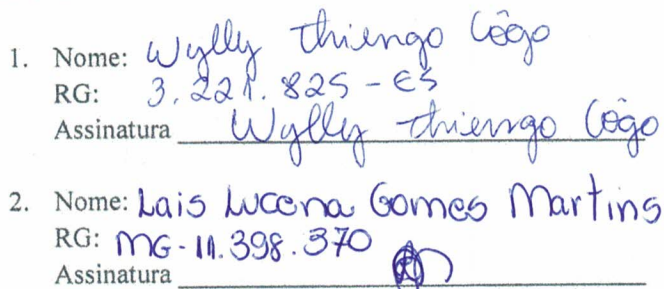 1. Nome: Wylly Thiengo Côgo
RG: 3.221.825-ES
Assinatura Wylly Thiengo Côgo
2. Nome: Lais Lucena Gomes Martins
RG: MG-11.398.370
Assinatura